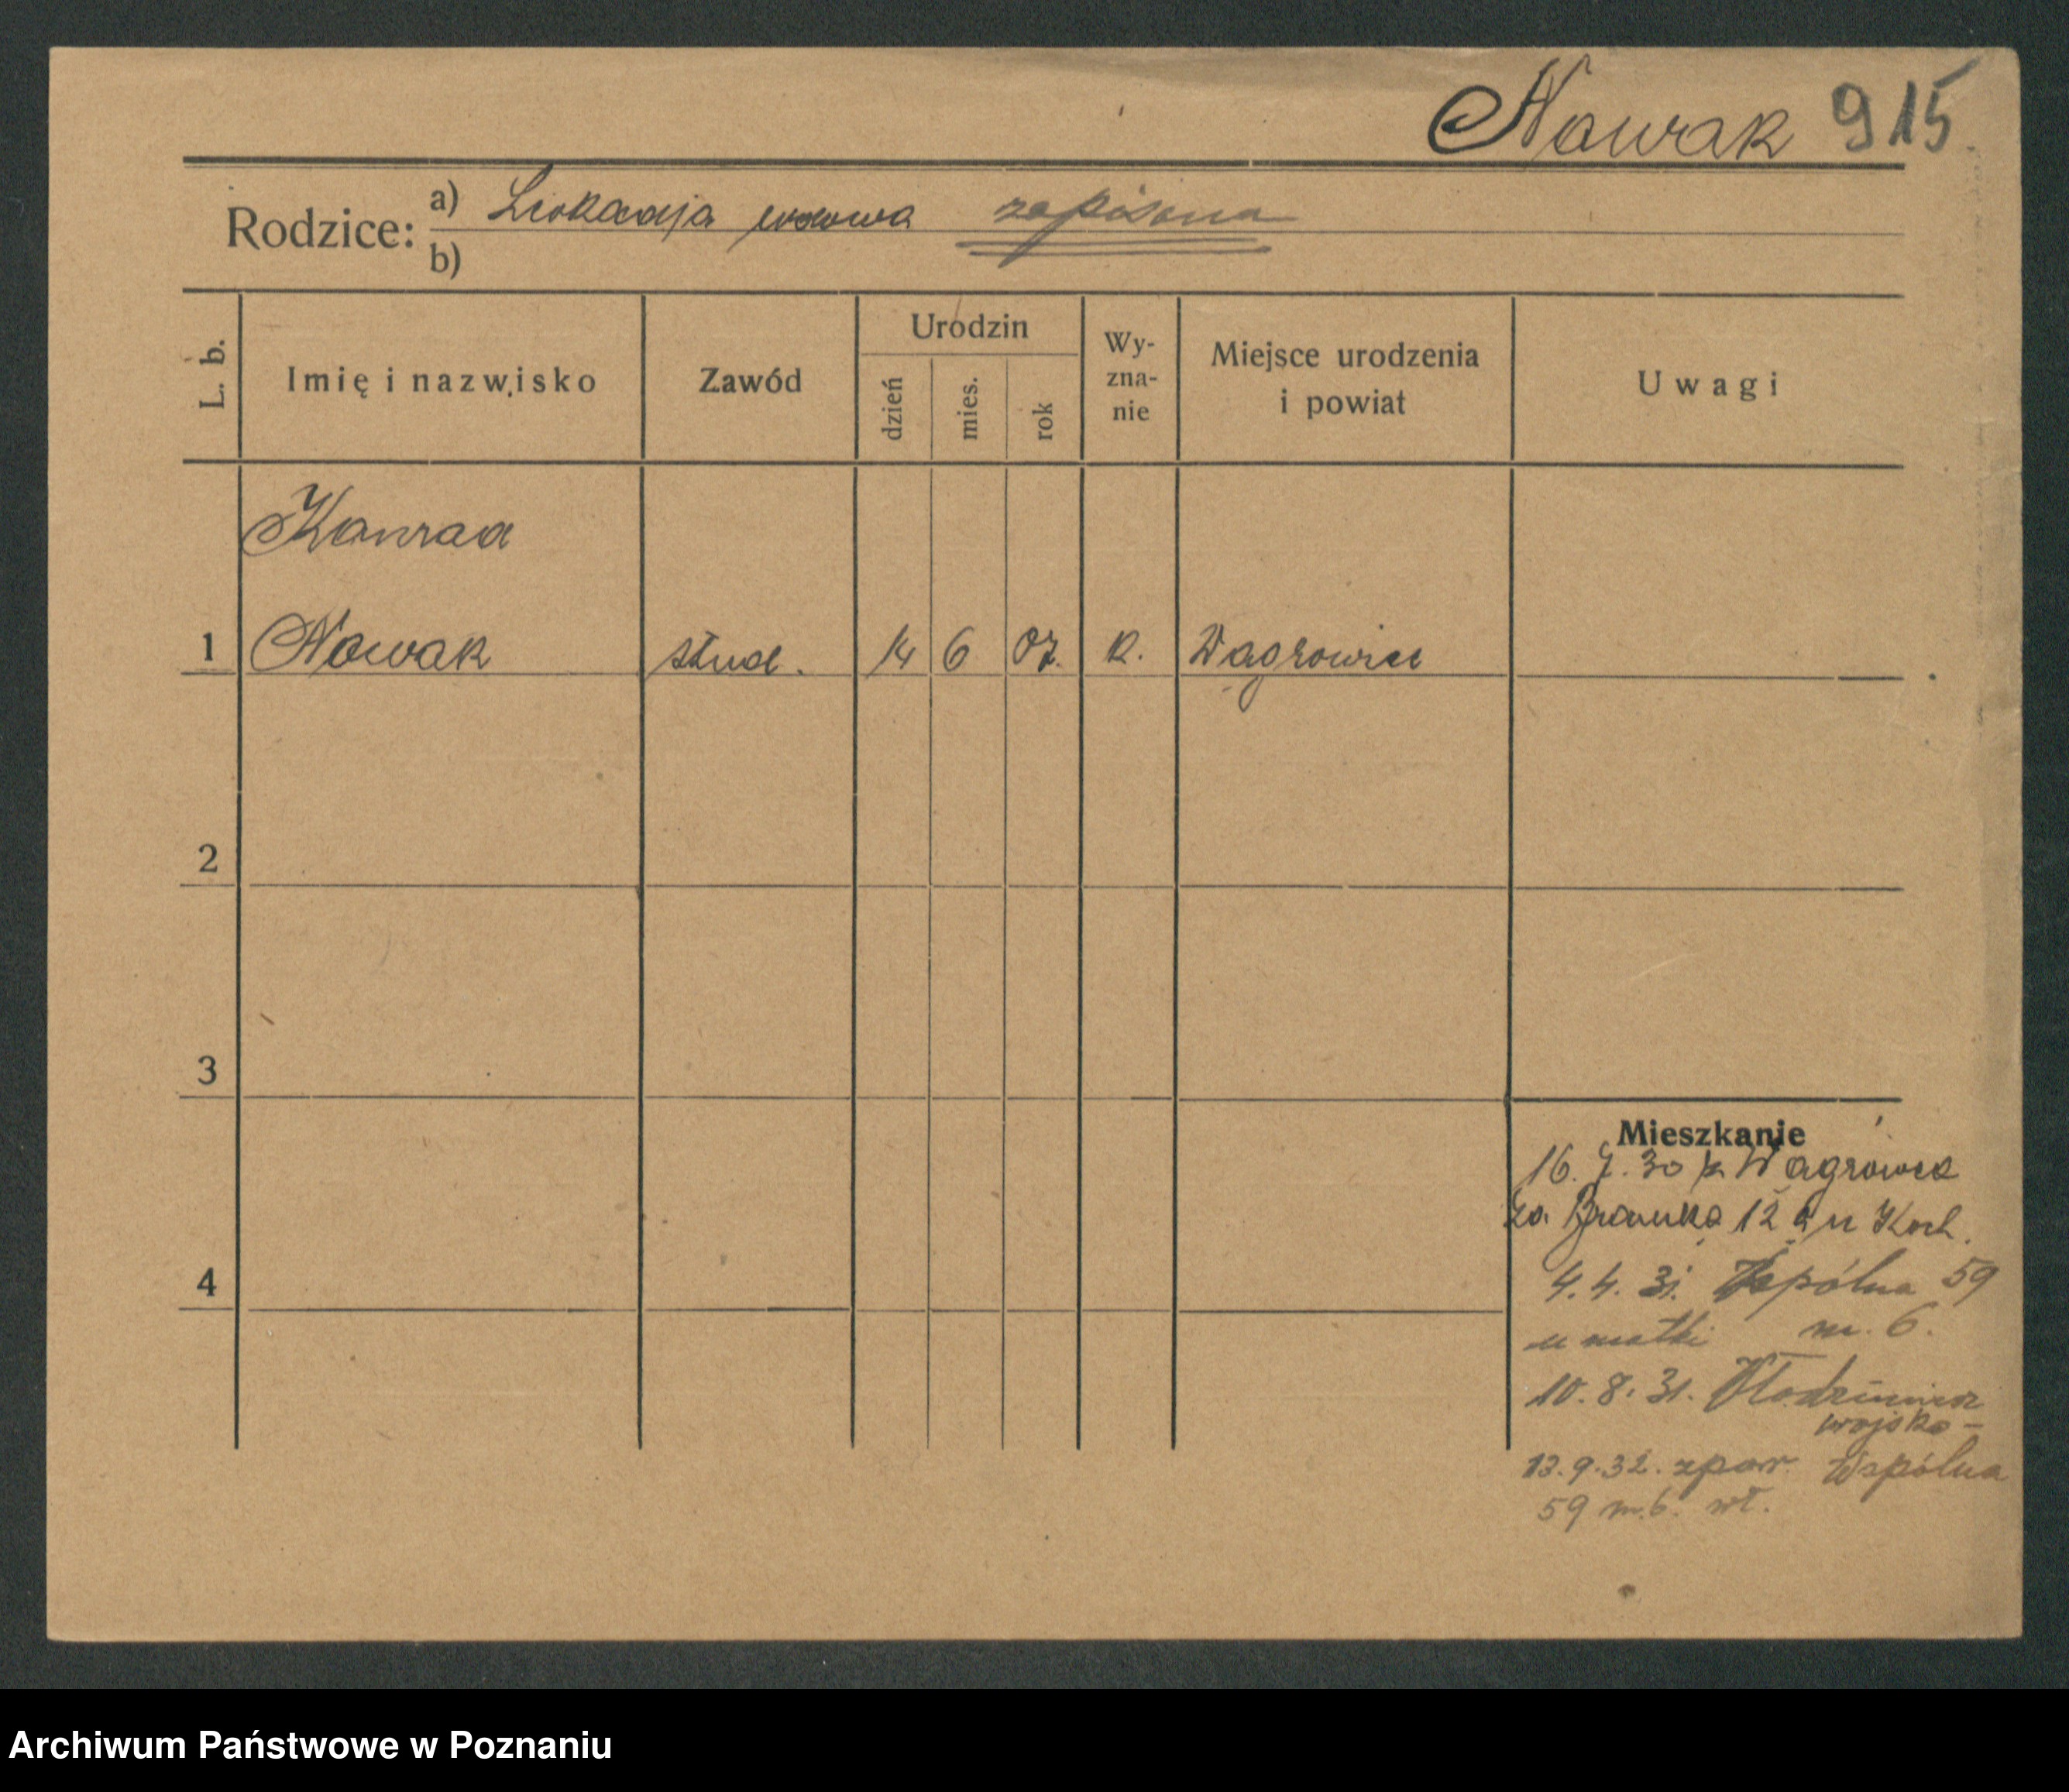 Nowak 915
Rodzice: a) Leokadja wdowa zapisana
b)
L. b. Imię i nazwisko Zawód Urodzin dzień mies. rok Wy-zna-nie Miejsce urodzenia i powiat Uwagi
Konrad
1 Nowak stud. 14 6 07. k. Wągrowiec
2
3
4
Mieszkanie
16. 9. 30 z Wągrowca
za Bramką 12 a u Koch.
4. 4. 31. Wspólna 59
u matki m. 6.
10. 8. 31. Włodzimierz
wojsko -
13. 9. 32. zpow. Wspólna
59 m. 6. wł.
Archiwum Państwowe w Poznaniu